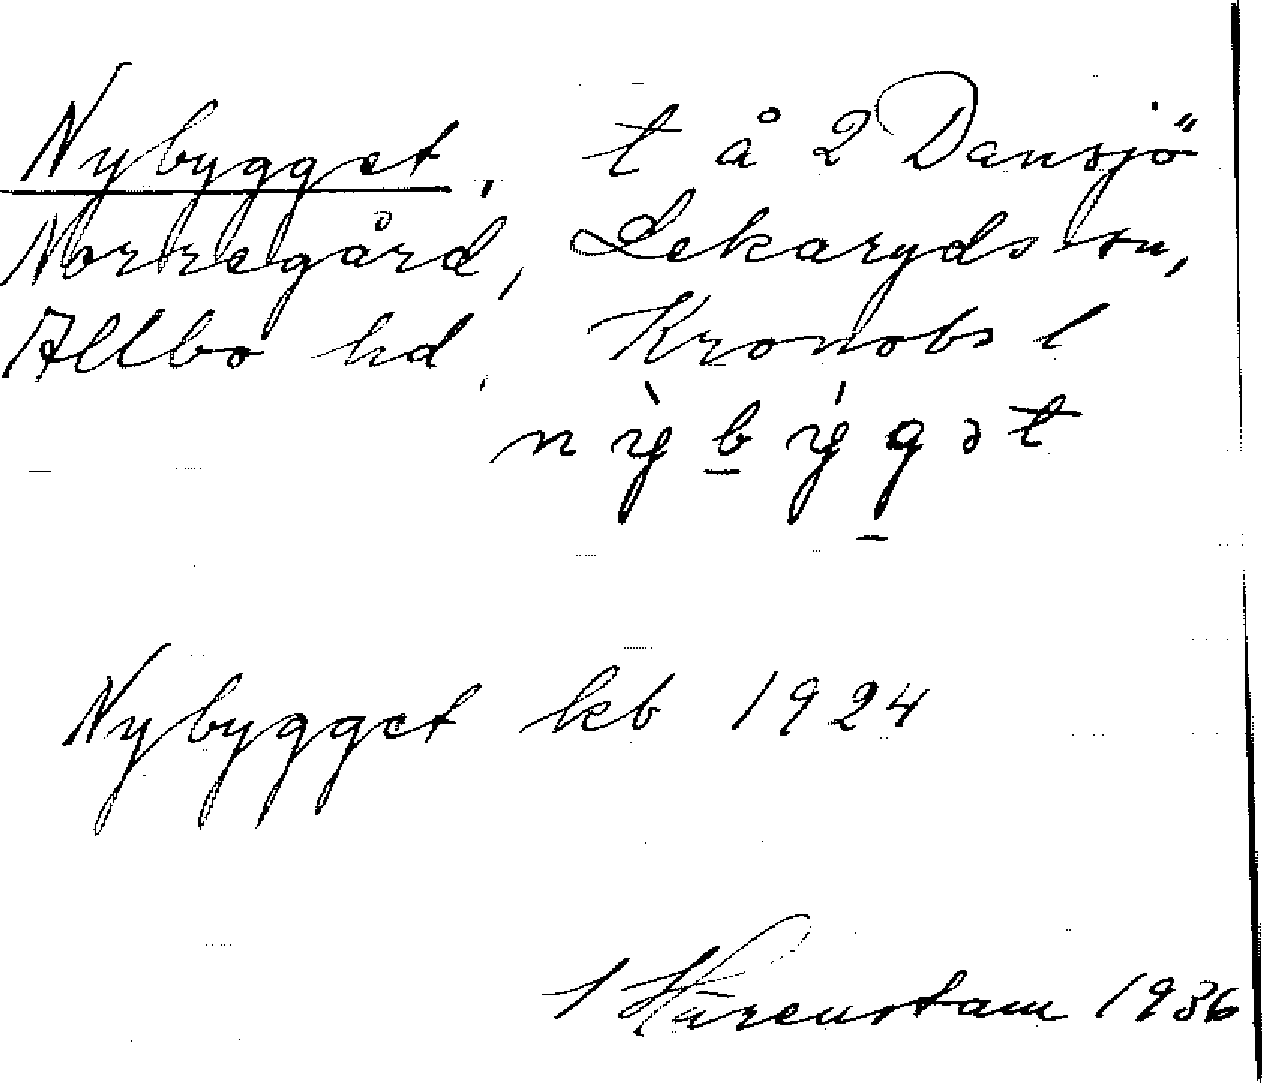 Nybygget, t å 2 Dansjö
Norregård, Lekaryds sn,
Allbo hd, Kronobs l
nỳbýgət
Nybygget kb 1924
1 Härenstam 1936